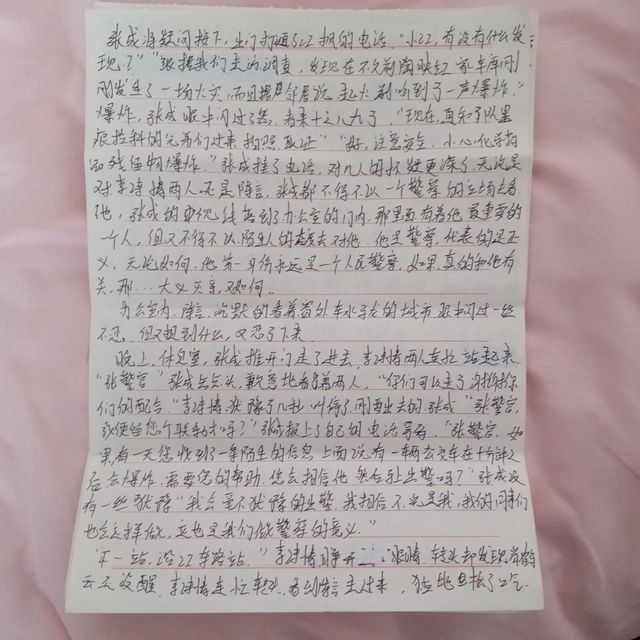 张成将疑问按下，出门打通了江枫的电话，"小江，有没有什么发
现了""根据我们走访调查，发现在不久前陶映红家车库刚
刚发生了一场火灾，而且据邻居说起火前听到了一声爆炸。"
爆炸，张成眼中闪过了然，看来十之八九了，"现在，通知队里
痕检科的兄弟们过来拍照取证""好，注意安全，小心化学药
品残留物爆炸。"张成挂了电话，对几人的怀疑更深了，无论是
对李诗情两人还是陈言，张成都不得不以一个警察的立场去看
他，张成的视线落到了办公室的门内，那里面有着他最重要的
一个人，但又不得不以陌生人的态度去对他，他是警察，代表的是正
义，无论如何，他第一身份永远是一个人民警察，如果真的和他有
关，那…大义灭亲，又如何。
办公室内，陈言，沉默的看着窗外车水马龙的城市，眼中闪过一丝
不忍，但又想到什么，又忍了下来。
晚上，休息室，张成推开门走了进去，李诗情两人连忙站起来
"张警官"张成点点头，歉意地看着两人，"你们可以走了，谢谢你
们的配合。"李诗情犹豫了几秒，叫停了刚要出去的张成"张警官，
方便给您个联系方式吗？"张成报上了自己的电话号码，"张警官，如
果有一天您收到了一条陌生的信息，上面说有一辆公交车在十分钟之
后会爆炸，需要您的帮助，您会相信他，然后让出警吗？"张成没
有一丝犹豫"我会毫不犹豫的出警，我相信不光是我，我的同事们
也会这样做，这也是我们做警察的意义。"
"下一站，沿江东路站。"李诗情睁开眼睛，转头却发现肖鹤
云还没醒，李诗情连忙转头，看到陈言走过来，猛地松了口气